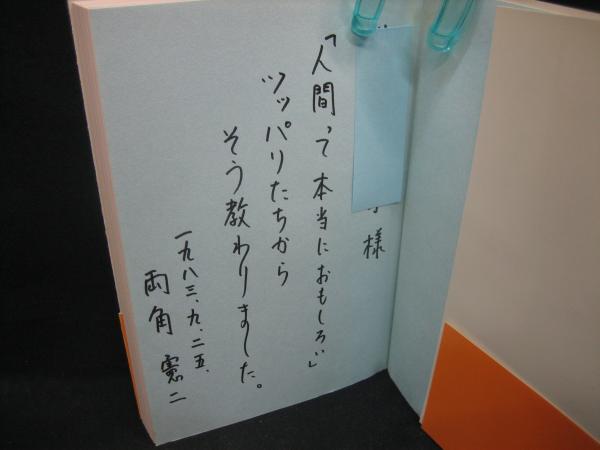 様
「人間って本当におもしろい」
ツッパリたちから
そう教わりました。
一九八三、九、二五、
両角憲二